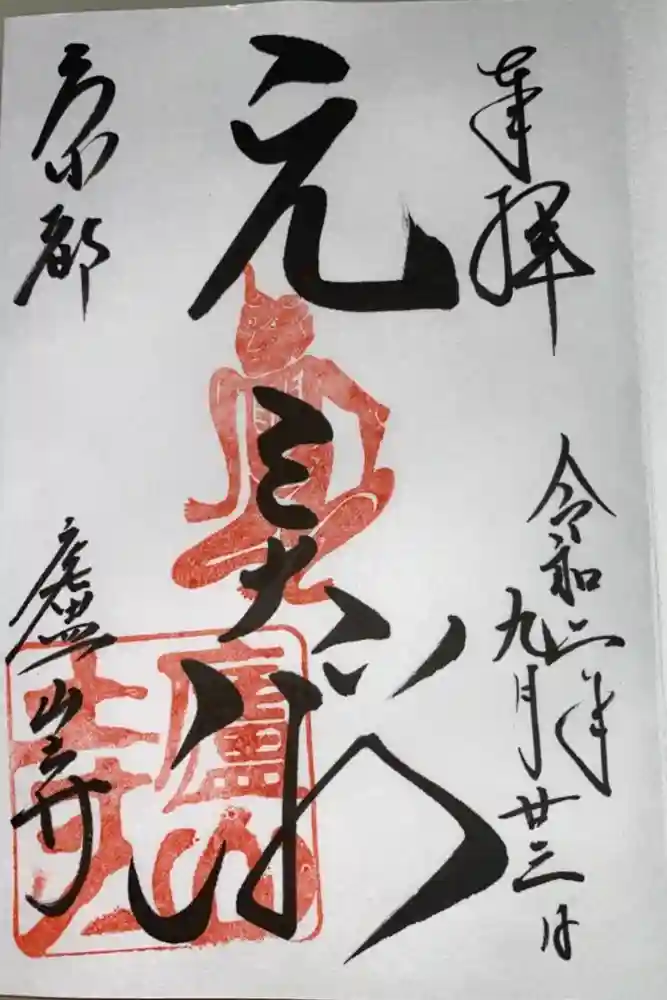 奉拝
令和二年
九月廿三日
元三大師
京都
廬山寺
廬山寺